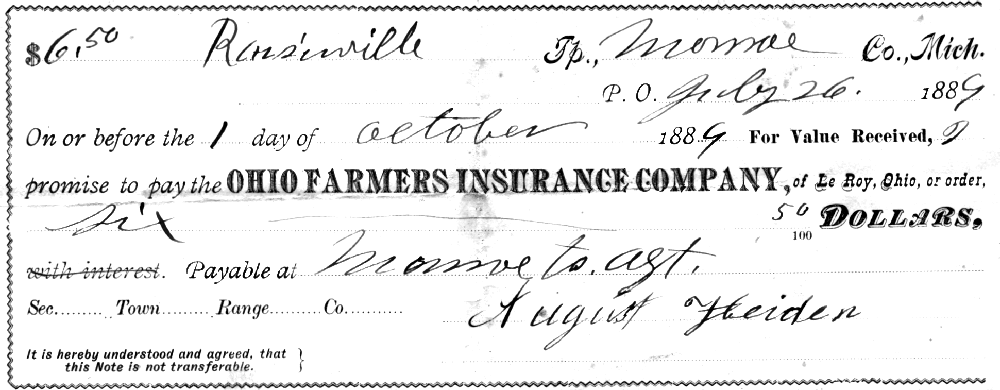 $6.50 Raisinville Tp., Monroe Co., Mich.
P. O. July 26. 1889
On or before the 1 day of October 1889 For Value Received, I
promise to pay the OHIO FARMERS INSURANCE COMPANY, of Le Roy, Ohio, or order,
six 50/100 DOLLARS,
with interest. Payable at Monroe to. agt.
Sec.......... Town .......... Range.......... Co............
August Heiden
It is hereby understood and agreed, that
this Note is not transferable.